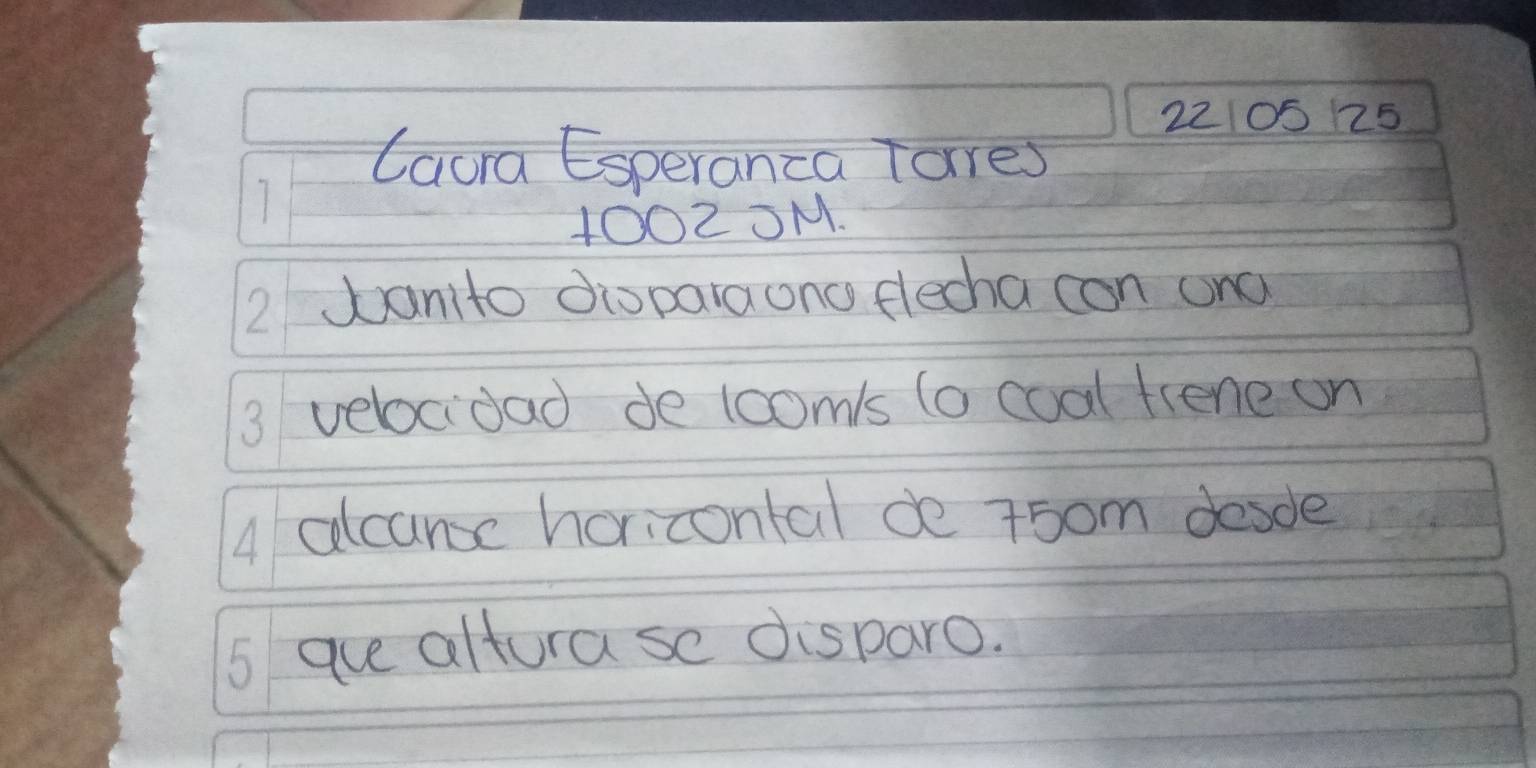 22/05/25
Laura Esperanza Torres
1 1002 JM.
2 Juanito dispara una flecha con una
3 velocidad de 100m/s lo cual tiene un
4 alcanse horizontal de 750m desde
5 que altura se disparo.